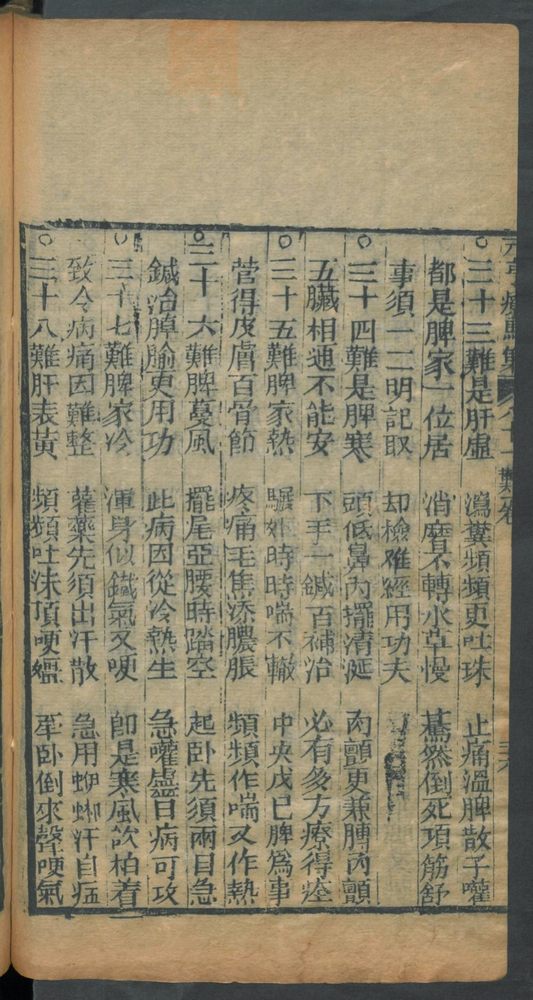 三十三難是肝虛 瀉糞頻頻更吐珠 止痛溫脾散子嚾
都是脾家一位居 消磨不轉水草慢 驀然倒死項筋舒
事須一二明記取 却檢难經用功夫
三十四難是脾寒 頭低鼻內擺清涎 肉顫更兼膊肉顫
五臟相連不能安 下手一鍼百補治 必有多方療得痊
三十五難脾家熱 臥時時喘不轍 中央戊已脾為事
營得皮膚百骨節 疼痛毛焦添膿脹 頻頻作喘又作熱
三十六難脾蔓風 擺尾亞腰時踏空 起卧先須兩目急
鍼治脾腧更用功 此病因從冷熱生 急嚾盡日病可攻
三十七難脾家冷 渾身似鐵氣又哽 即是寒風飲柏着
致令病痛因難整 藿藥先須出汗散 急用蜘蛛汗自
三十八難肝表黃 頻頻吐沫頂哽 卧倒來聲哽氣